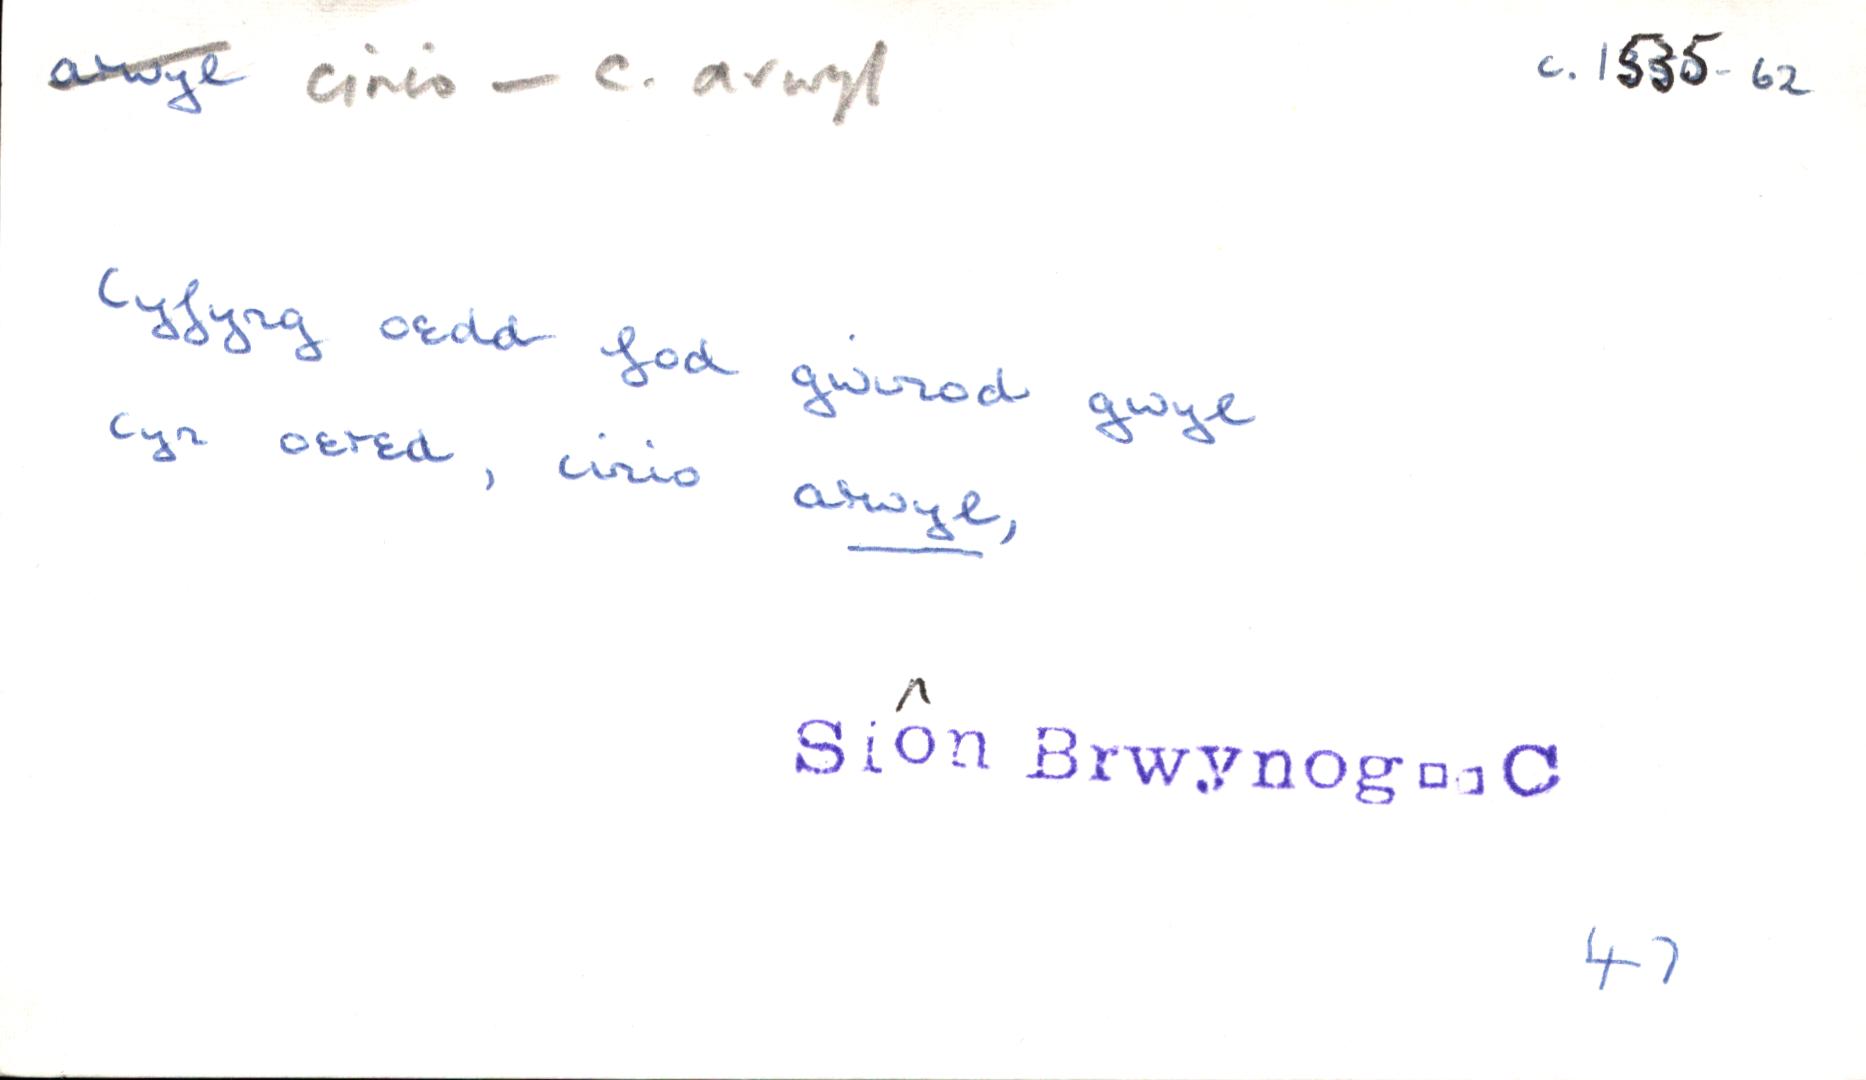 arwyl cinio - c. arwyl
c. 1535-62
Cyfyng oedd fod gwirod gwyl
cyn oered, cinio arwyl,
Siôn Brwynog: C
47